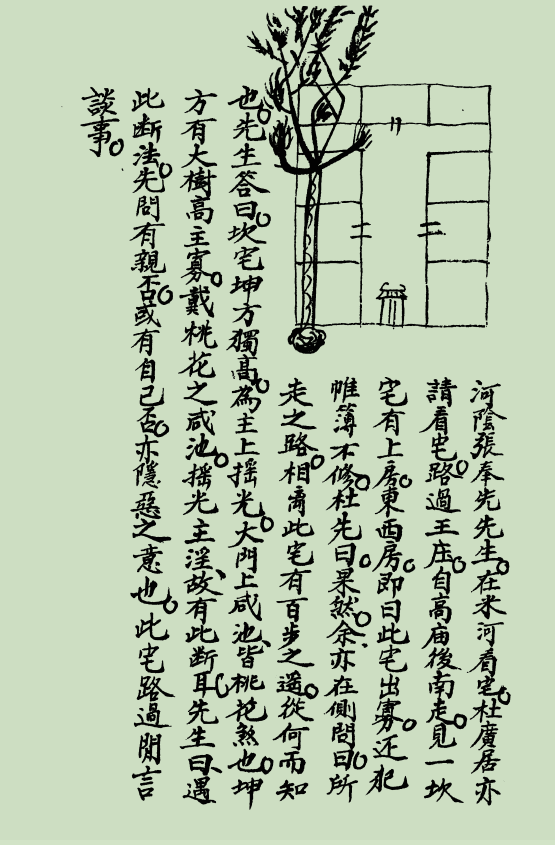 河陰張奉先先生。在米河看宅。杜廣居亦
請看宅。路過王庄。自高庙後南走。見一坎
宅有上房。東西房。即曰此宅出寡。还犯
帷薄不修。杜先曰。果然。余亦在側問曰。所
走之路。相离此宅有百步之遥。從何而知
也。先生答曰。坎宅坤方獨高。為主上摇光。大門上咸池、皆桃花煞也。坤
方有大樹高主寡。戴桃花之咸池。摇光主淫、故有此断耳。先生曰、遇
此断法。先問有親否。或有自己否。亦隱惡之意也。此宅路過閒言
談事。